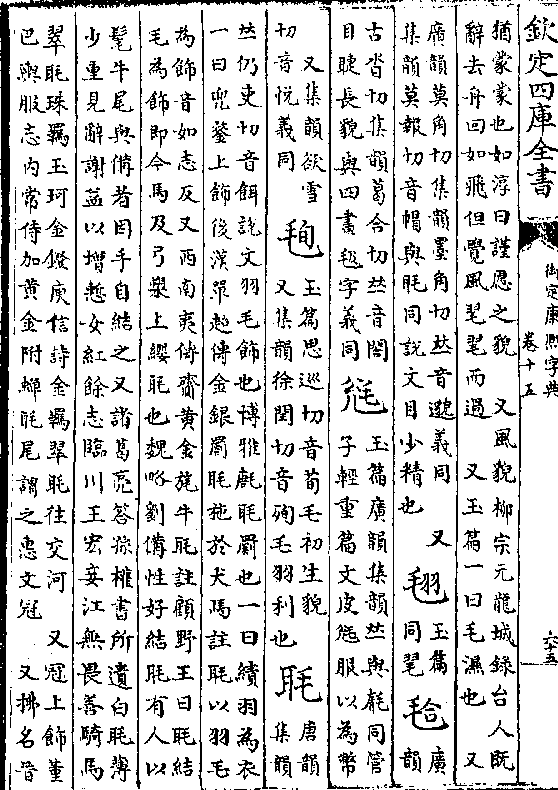 欽定四庫全書
御定康熙字典
卷十五
六十五
猶蒙蒙也如淳曰謹愿之貌　又風貌柳宗元龍城錄台人既
辭去舟回如飛但覺風毣毣而過　又玉篇一曰毛濕也　又
廣韻莫角切集韻墨角切𠀤音邈義同
集韻莫報切音帽與眊同說文目少精也
又
毦玉篇
同毣
毰廣
韻
古沓切集韻葛合切𠀤音閤
目睫長貌與四畫毢字義同
毤玉篇廣韻集韻𠀤與毻同管
子輕重篇文皮毤服以為幣
又集韻欲雪
切音悅義同
毥玉篇思巡切音荀毛初生貌
又集韻徐閏切音殉毛羽利也
毦唐韻
集韻
𠀤仍吏切音餌說文羽毛飾也博雅㲪毦罽也一曰績羽為衣
一曰兜鍪上飾後漢單超傳金銀罽毦施於犬馬註毦以羽毛
為飾音如志反又西南夷傳齎黃金旄牛毦註顧野王曰毦結
毛為飾即今馬及弓槊上纓毦也魏略劉備性好結毦有人以
髦牛尾與備者因手自結之又諸葛亮答孫權書所遺白毦薄
少重見辭謝益以增慙女紅餘志臨川王宏妾江無畏善騎馬
翠毦珠羈玉珂金鐙庾信詩金羈翠毦往交河　又冠上飾董
巴輿服志內常侍加黃金附蟬毦尾謂之惠文冠　又拂名晉